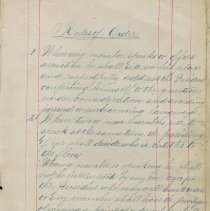 Rules of Order
1. When any member speaks or offers
a motion he shall rise in his place
and respectfully address the President
confining himself to the question
under consideration and avoiding
personal or unbecoming language
2. When two or more members rise to
speak at the same time the presiding
officer shall decide who is entitled to
the floor
When a member is speaking he shall
not be interrupted by any one except
the President
or any member shall have privilege